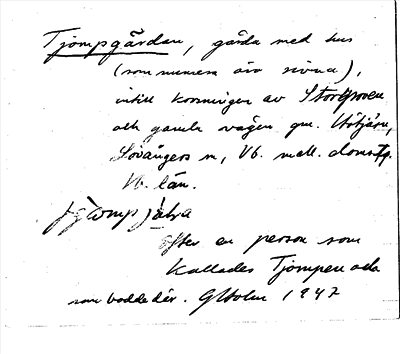 Tjompgärdan, gärda med hus
(som numera äro rivna),
intill korsningen av Storgroven
och gamla vägen gm.
Lövångers sn, Vb. mell. doms.
Vb. län.
efter en person som
kallades Tjompen och
som bodde där. G Holm 1947